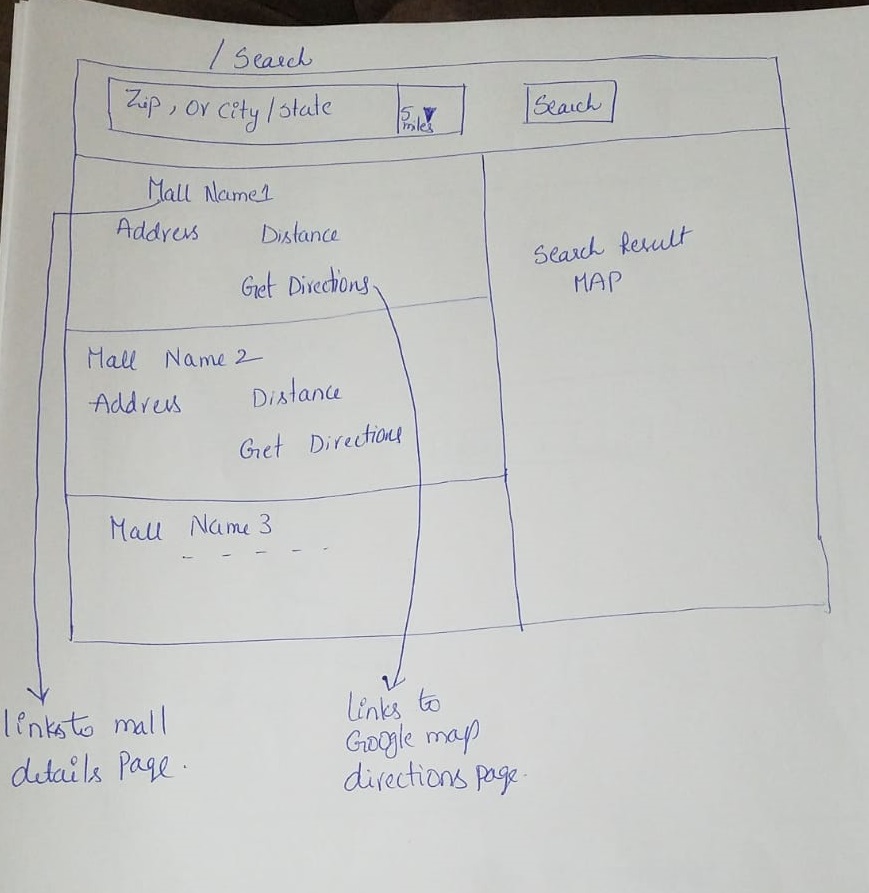 / Search
Zip, or City/State
5 miles
Search
Mall Name1
Address Distance
Get Directions
Search Result
MAP
Mall Name 2
Address Distance
Get Directions
Mall Name 3
links to mall
details Page.
links to
Google map
directions page.